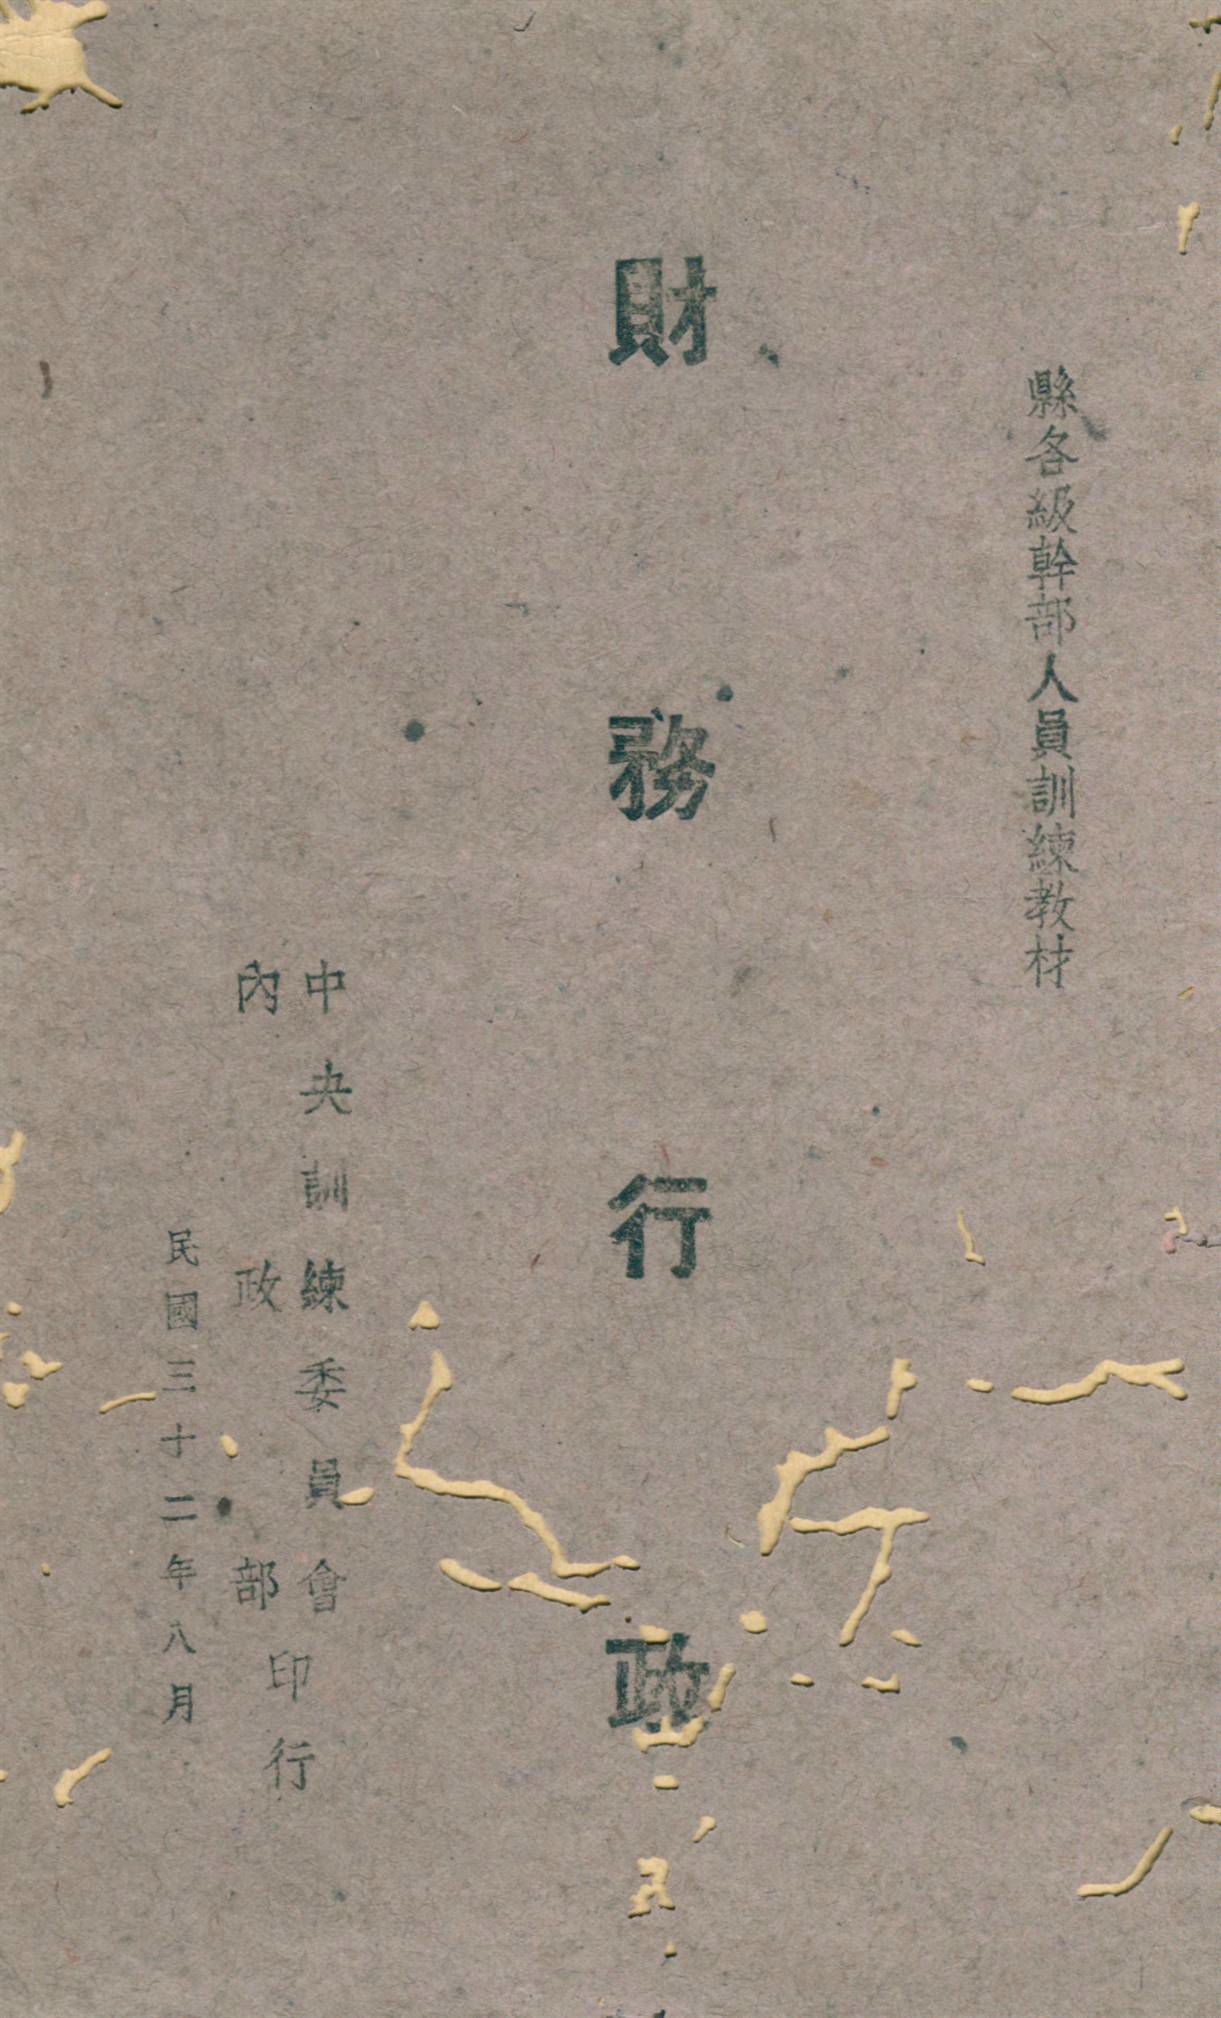 縣各級幹部人員訓練教材
財務行政
中央訓練委員會
內政部
印行
民國三十二年八月